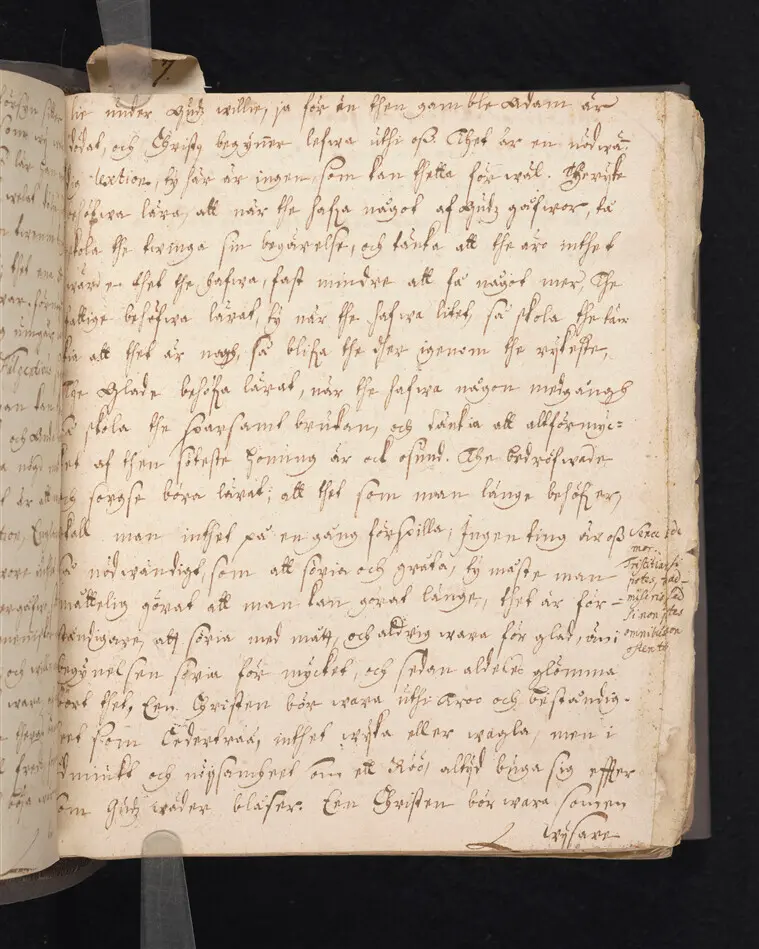 7.
lie under Gudz willie, ja för än then gamble Adam är
dödat, och Christus begynner lefwa uthi oss. Thet är en nödwän-
dig lextion, ty här är ingen som kan thetta för wäl. The ryke
behöfwa lära, att när the hafwa något af Gudz gåfwor, så
skola the twinga sin begärelse, och tänka att the äro inthet
wärd en thet the hafwa, fast mindre att få något mer, The
fattige behöfwa lärat, ty när the hafwa litet, så skola the tän-
kia att thet är nogh, så blifwa the ther igenom the rykeste,
The Glade behöfwa lärat, när the hafwa någon medgångh
så skola the sparsamt brukan, och tänkia att altförmyc-
ket af then söteste honing är ock osund. The bedröfwade
och sorgse böra lärat; att thet som man länge behöfwer,
skall man inthet på en gång förspilla, Ingen ting är oss
så nödwändigt, som att sörja och gråta, ty måste man
måttelig görat att man kan görat länge, thet är för-
ständigare, att sörja med mått, och aldrig wara för glad, än i
begynelsen sörja för mycket, och sedan aldeles glömma
bort thet, Een Christen bör wara uthi troo och beständig-
heet som Cederträä, inthet wyka eller wagla, men i
ödmiukt och nöysamheet om ett Röö, altyd buga sig effter
som Gudz wäder blåser. Een Christen bör wara som en
wysare
Tristitiam si
potes,
si non potes